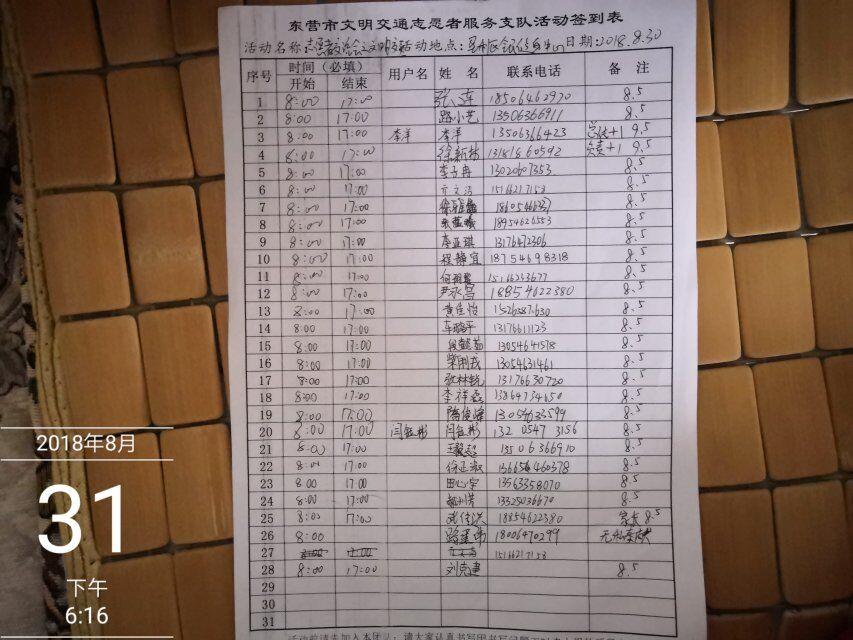 东营市文明交通志愿者服务支队活动签到表
活动名称: 活动地点: 日期:2018.8.30
序号 时间（必填） 用户名 姓 名 联系电话 备 注
开始 结束
1 8:00 17:00 张连 18506462970 8.5
2 8:00 17:00 路小艺 13506366911 8.5
3 8:00 17:00 李洋 李洋 13506366423 总长+1 9.5
4 8:00 17:00 徐新栋 13181860592 负责+1 9.5
5 8:00 17:00 李子冉 13020607353 8.5
6 8:00 17:00 15166217158 8.5
7 8:00 17:00 8.5
8 8:00 17:00 18954626553 8.5
9 8:00 17:00 李亚琪 13176472306 8.5
10 8:00 17:00 程静宜 18754698318 8.5
11 8:00 17:00 15166253677 8.5
12 8:00 17:00 18854622380 8.5
13 8:00 17:00 黄佳怡 15265871630 8.5
14 8:00 17:00 车晓平 13176611123 8.5
15 8:00 17:00 13054641578 8.5
16 8:00 17:00 13054631461 8.5
17 8:00 17:00 张林锐 13176630720 8.5
18 8:00 17:00 李祥磊 13864734650 8.5
19 8:00 17:00 13054633599 8.5
20 8:00 17:00 闫钰彬 闫钰彬 13205473156 8.5
21 8:00 17:00 王毅超 13506366910 8.5
22 8:00 17:00 徐正淑 13665460378 8.5
23 8:00 17:00 田心宇 13563358070 8.5
24 8:00 17:00 13325036670 8.5
25 8:00 17:00 18854622380 家长 8.5
26 8:00 17:00 路建伟 18006470299
27 15166217158
28 8:00 17:00 刘克建 8.5
29
30
31
活动前请先加入本团队，请大家认真书写
2018年8月
31
下午
6:16